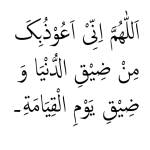 اَللّٰهُمَّ اِنِّیْ اَعُوْذُبِکَ
مِنْ ضِیْقِ الدُّنْیَا وَ
ضِیْقِ یَوْمِ الْقِیَامَةِ۔